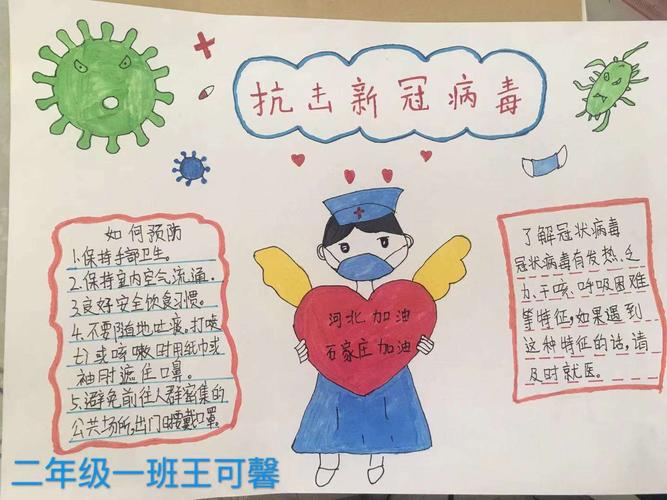 抗击新冠病毒
如何预防
1.保持手部卫生。
2.保持室内空气流通。
3.良好安全饮食习惯。
4.不要随地吐痰,打喷
七或咳嗽时用纸巾或
袖肘遮住口鼻。
5.避免前往人群密集的
公共场所,出门要戴口罩。
河北加油
石家庄加油
了解冠状病毒
冠状病毒有发热、乏
力、干咳、呼吸困难
等特征,如果遇到
这种特征的话,请
及时就医。
二年级一班王可馨